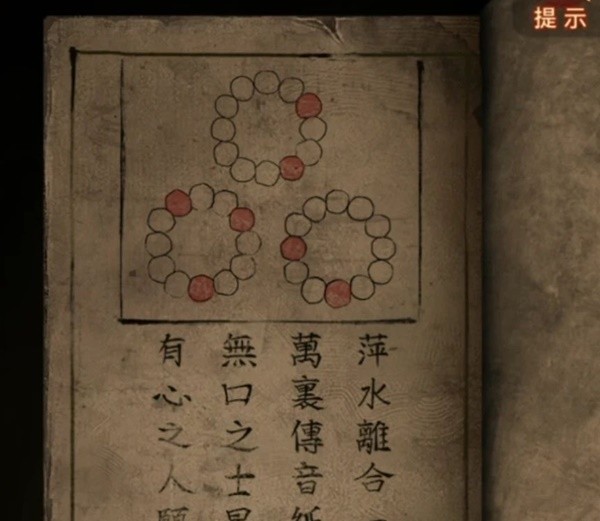 提示
萍水離合
萬裏傳音
無口之士
有心之人